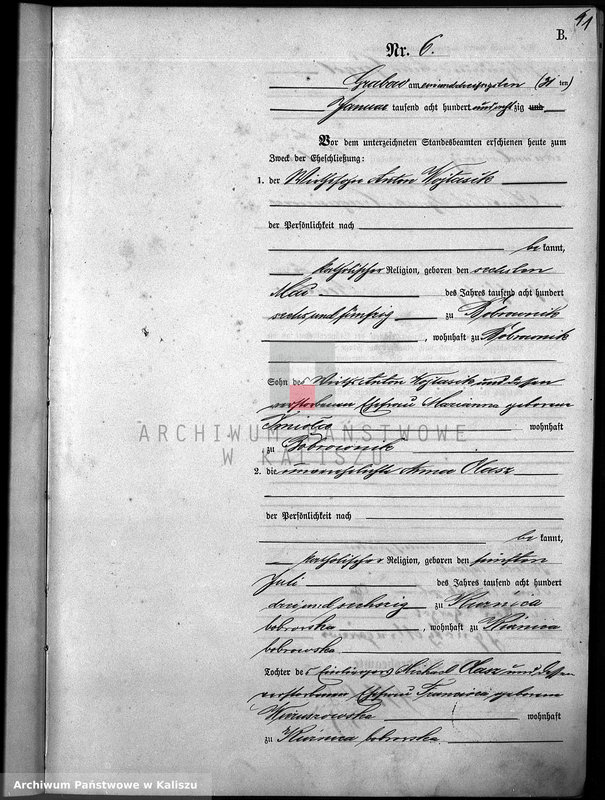 41
B.
Nr. 6.
Grabow am einunddreißigsten (31 ten)
Januar tausend acht hundert undachtzig und
Vor dem unterzeichneten Standesbeamten erschienen heute zum
Zweck der Eheschließung:
1. der Wirthssohn Anton Wojtasik
der Persönlichkeit nach
be kannt,
katholischer Religion, geboren den sechsten
Mai des Jahres tausend acht hundert
sechs und fünfzig zu Bobrownik
, wohnhaft zu Bobrownik
Sohn des Wirth Anton Wojtasik und dessen
verstorbenen Ehefrau Marianna geborene
wohnhaft
zu Bobrownik
2. die unverehelichte Anna Olasz
der Persönlichkeit nach
be kannt,
katholischer Religion, geboren den fünften
Juli des Jahres tausend acht hundert
drei und sechszig zu Kuznica
bobrowska, wohnhaft zu Kuznica
bobrowska
Tochter des Einliegers Michael Olasz und dessen
verstorbenen Ehefrau Francisca geborene
Wieruszowska wohnhaft
zu Kuznica bobrowska
ARCHIWUM PAŃSTWOWE
W KALISZU
Archiwum Państwowe w Kaliszu